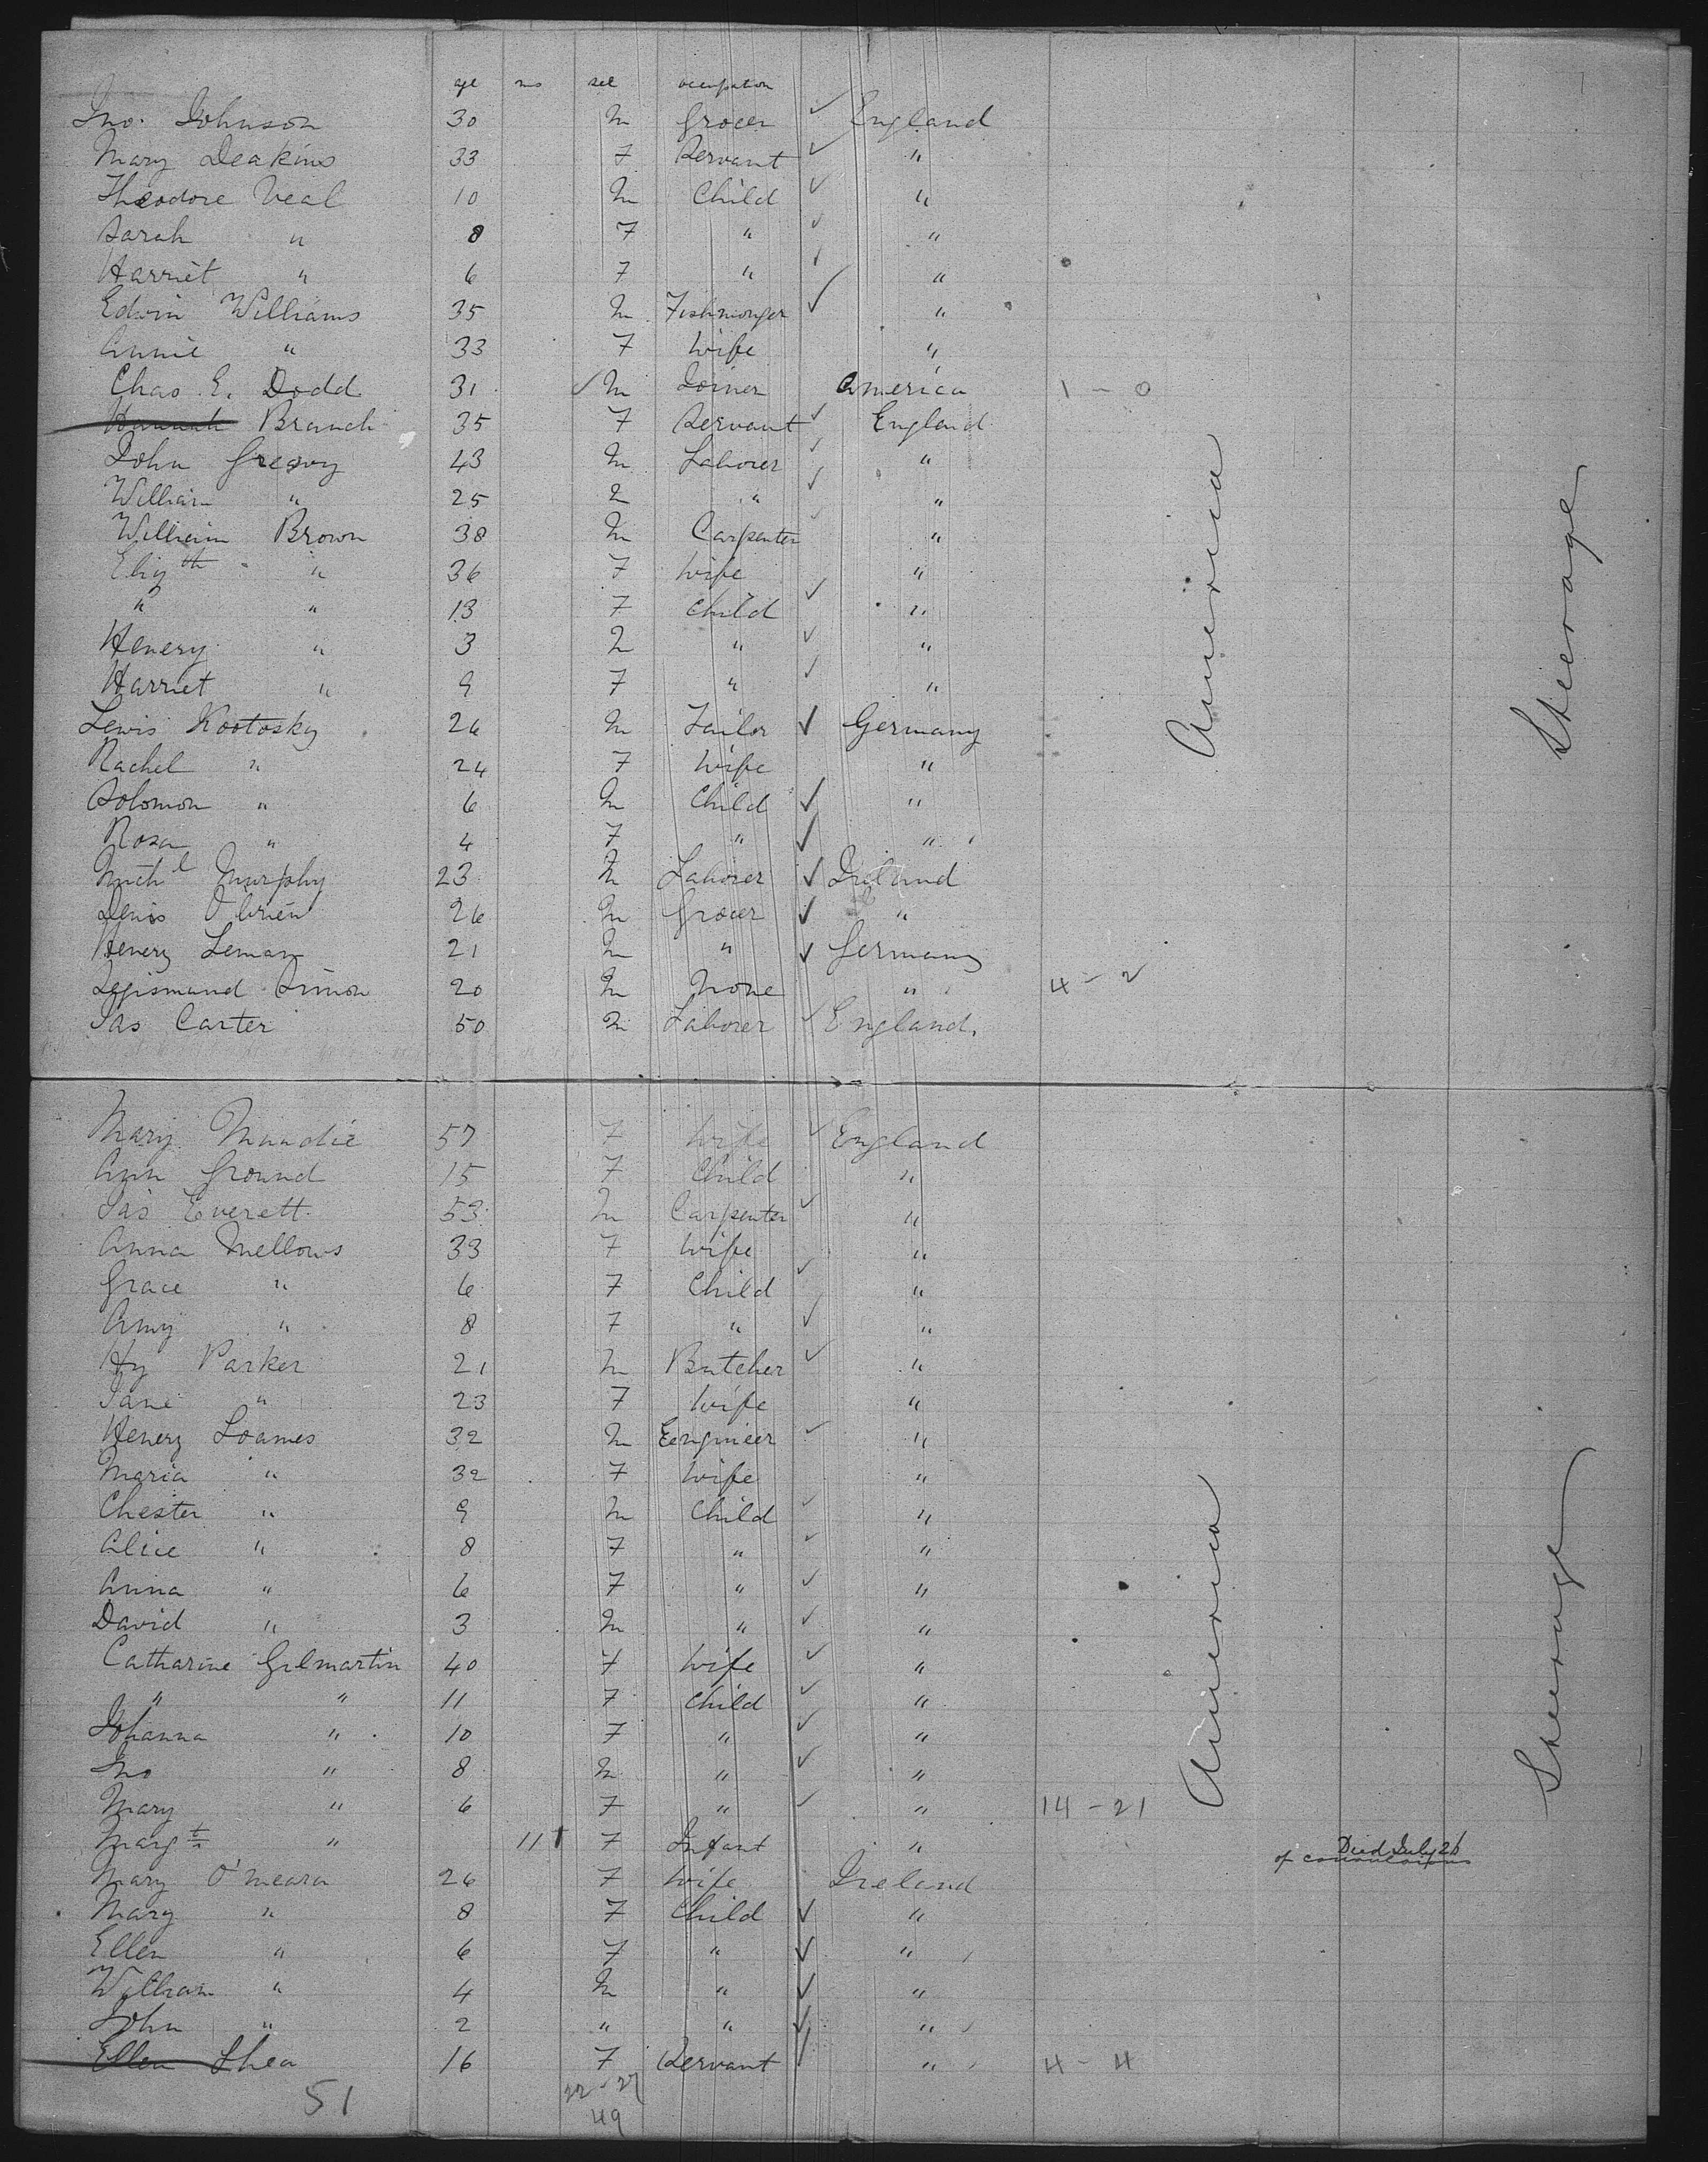 age ms sex occupation
Jno. Johnson 30 M Grocer ✓ England
Mary Deakins 33 F Servant ✓ "
Theodore Veal 10 M Child ✓ "
Sarah " 8 F " ✓ "
Harriet " 6 F " ✓ "
Edwin Williams 35 M Fishmonger ✓ "
Annie " 33 F Wife "
Chas. E. Dodd 31 ✓ M Joiner America 1 - 0
Hannah Branch 35 F Servant ✓ England
John Gregory 43 M Laborer ✓ "
William " 25 M " ✓ "
William Brown 38 M Carpenter ✓ "
Elizth " 36 F Wife "
" " 13 F Child ✓ "
Henery " 3 M " ✓ "
Harriet " 9 F " ✓ "
Lewis Kootosky 26 M Tailor ✓ Germany
Rachel " 24 F Wife "
Solomon " 6 M Child ✓ "
Rosa " 4 F " ✓ "
Michl Murphy 23 M Laborer ✓ Ireland
Denis O'brien 26 M Grocer ✓ "
Henery Leman 21 M " ✓ Germany
Simon 20 M None " 4 - 2
Jas Carter 50 M Laborer ✓ England.
America
Steerage
Mary 57 F Wife ✓ England
Ann Ground 15 F Child "
Jas Everett 53 M Carpenter ✓ "
Anna Mellows 33 F Wife "
Grace " 6 F Child ✓ "
Amy " 8 F " ✓ "
Hy Parker 21 M Butcher ✓ "
Jane " 23 F Wife "
Henery Loames 32 M Eengineer ✓ "
Maria " 32 F Wife "
Chester " 9 M Child ✓ "
Alice " 8 F " ✓ "
Anna " 6 F " ✓ "
David " 3 M " ✓ "
Catharine Gilmartin 40 F Wife ✓ "
" " 11 F Child ✓ "
Johanna " 10 F " ✓ "
Jno " 8 M " ✓ "
Mary " 6 F " ✓ " 14 - 21
Margt " 11 F Infant " Died July 26
of convulsions
Mary O'meara 26 F Wife Ireland
Mary " 8 F Child ✓ "
Ellen " 6 F " ✓ "
William " 4 M " ✓ "
John " 2 " " ✓ "
Ellen Shea 16 F Servant ✓ " 4 - 4
America
Steerage
51 22 - 27
49